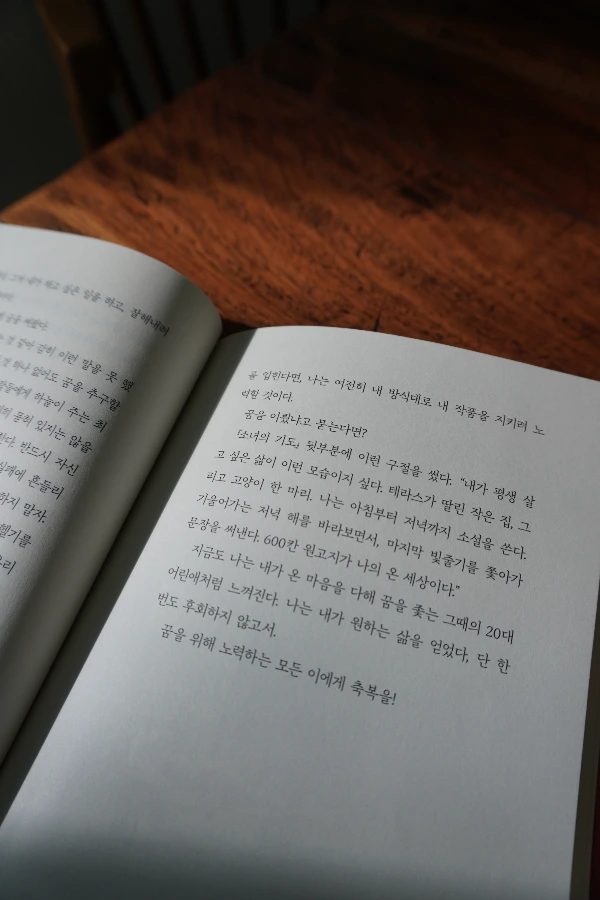 하고 싶은 일을 하고, 잘해내려
것 같아 감히 이런 말을 못 했
것 하나 없어도 꿈을 추구할
하늘이 주는 최
있지는 않을
반드시 자신
흔들리
하지 말자.
을 입힌다면, 나는 여전히 내 방식대로 내 작품을 지키려 노
력할 것이다.
꿈을 이뤘냐고 묻는다면?
기도』 뒷부분에 이런 구절을 썼다. “내가 평생 살
고 싶은 삶이 이런 모습이지 싶다. 테라스가 딸린 작은 집, 그
리고 고양이 한 마리. 나는 아침부터 저녁까지 소설을 쓴다.
기울어가는 저녁 해를 바라보면서, 마지막 빛줄기를 쫓아가
문장을 써낸다. 600칸 원고지가 나의 온 세상이다.”
지금도 나는 내가 온 마음을 다해 꿈을 좇는 그때의 20대
어린애처럼 느껴진다. 나는 내가 원하는 삶을 얻었다, 단 한
번도 후회하지 않고서.
꿈을 위해 노력하는 모든 이에게 축복을!